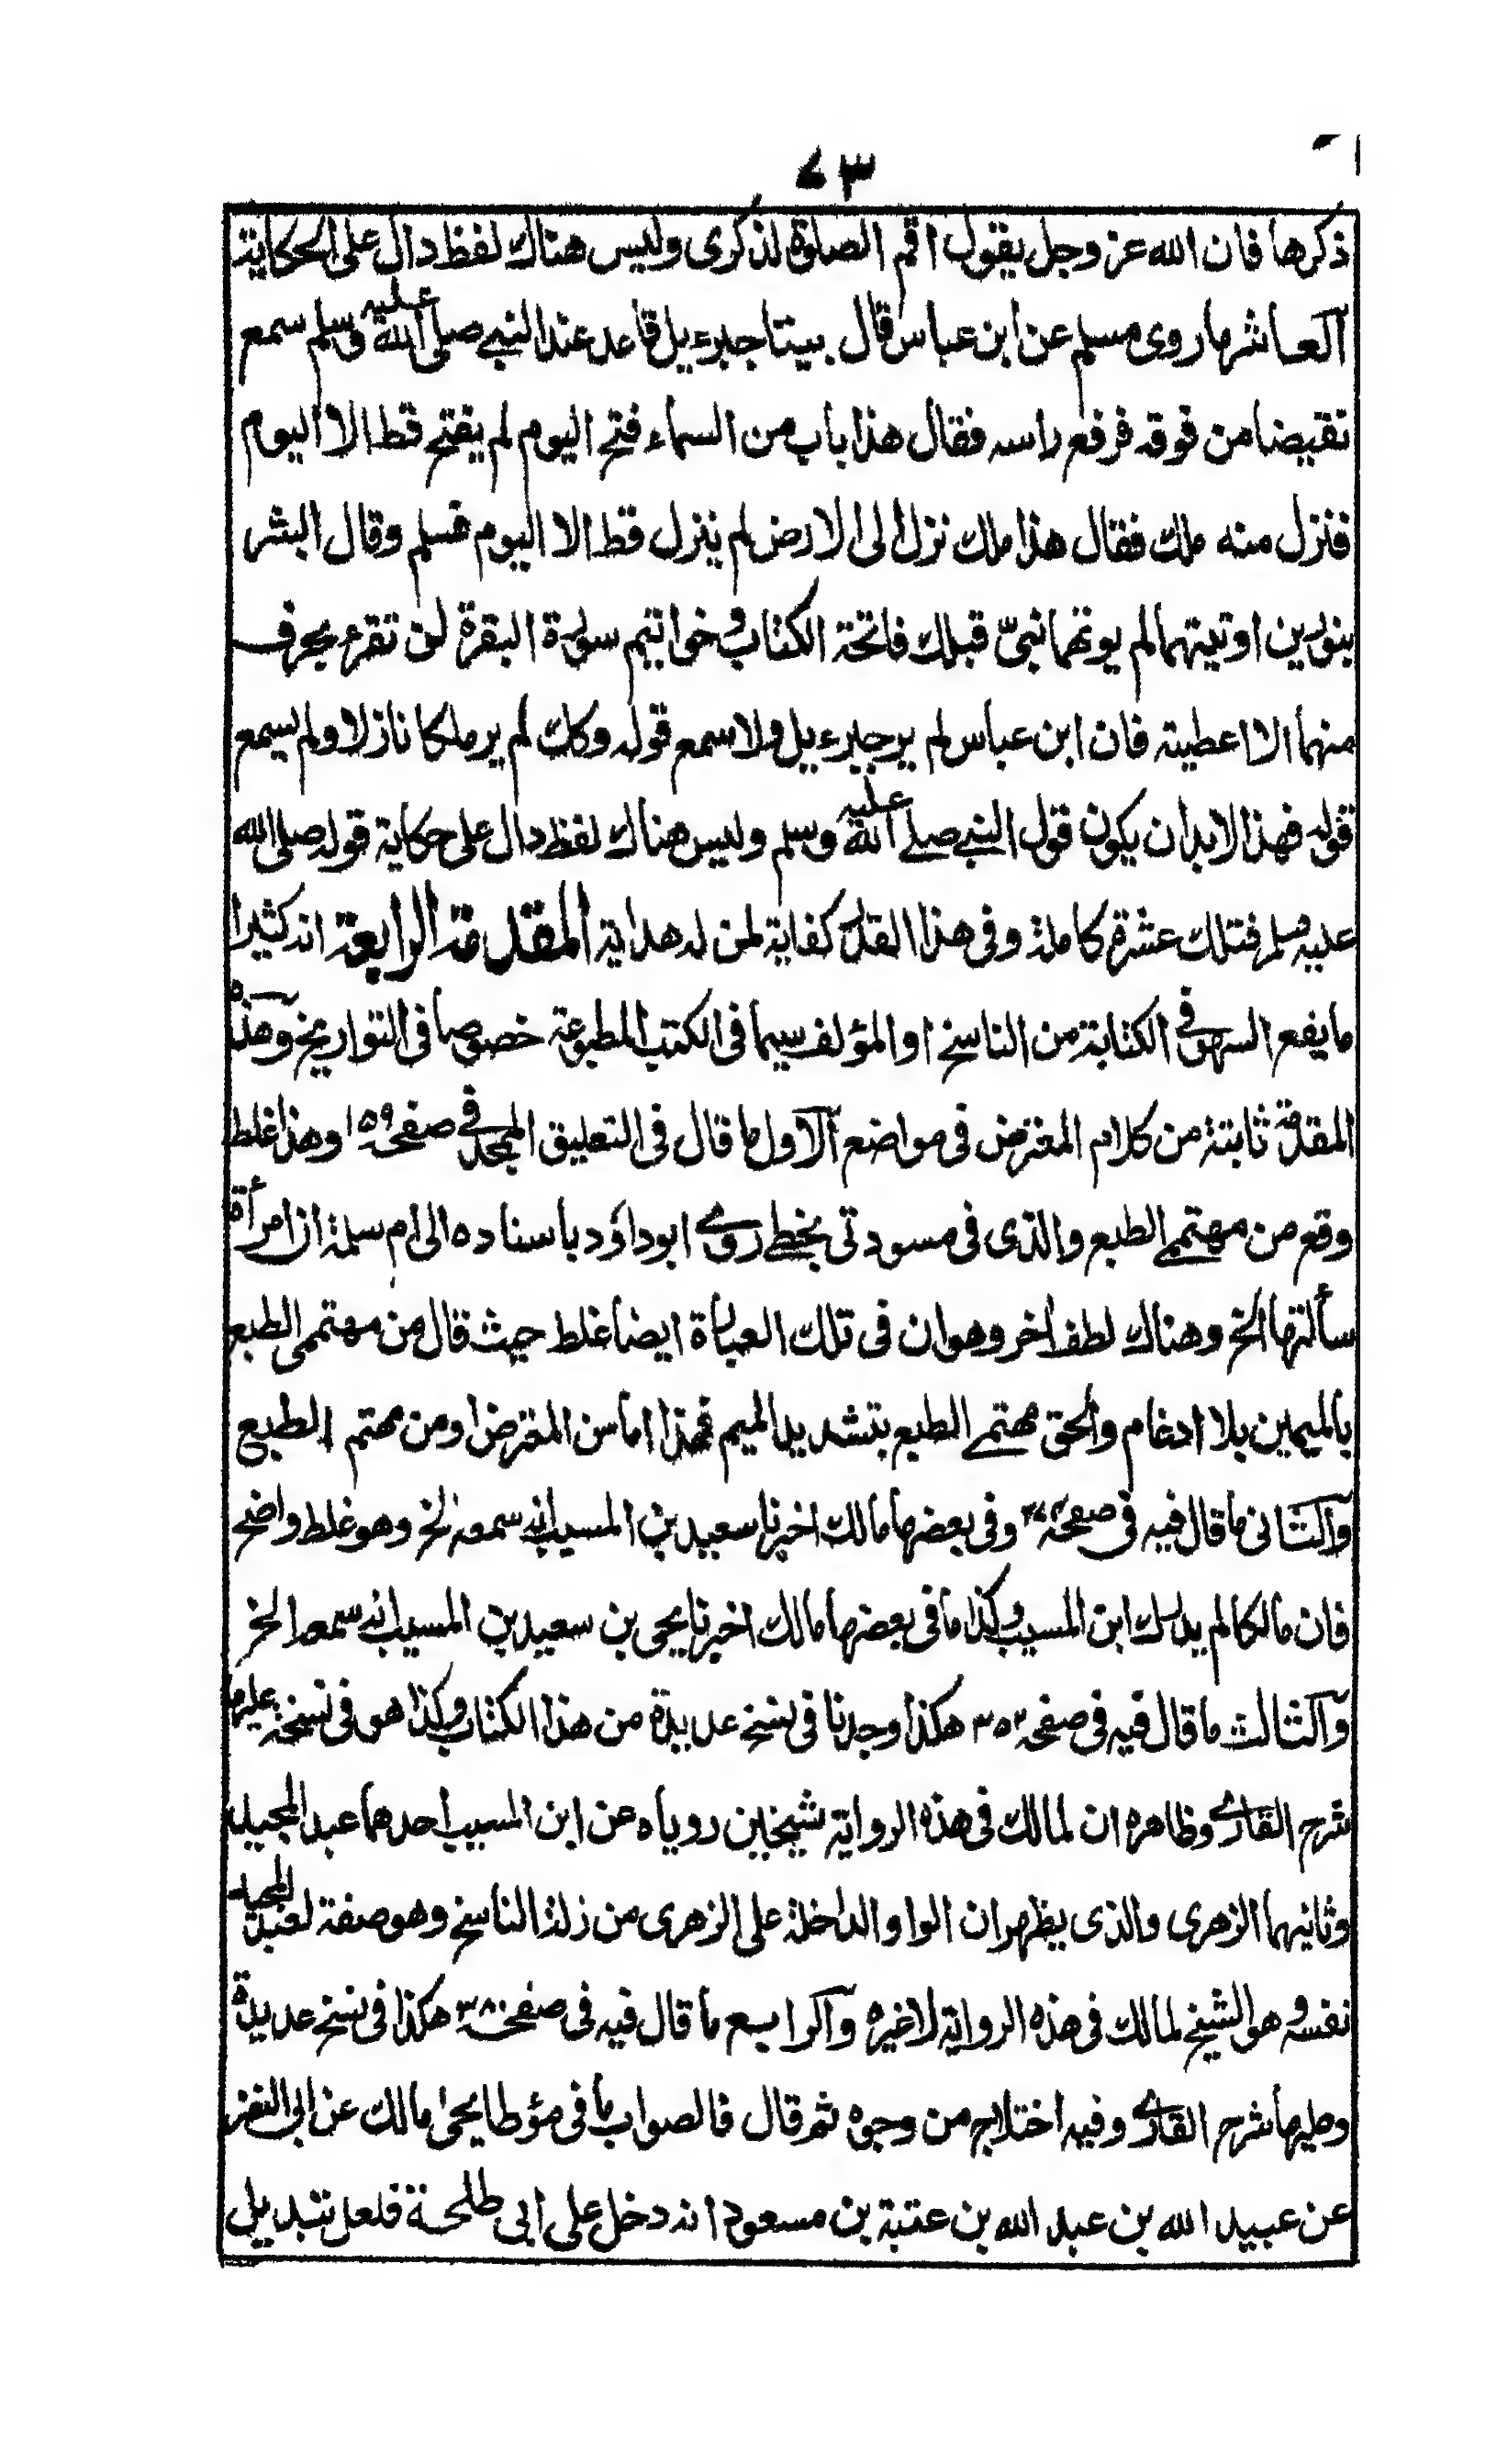 ٧٣
ذكرها فان الله عز وجل يقول اقم الصلوة لذكرى وليس هناك لفظ دال على الحكاية
آلعاشر ما روى مسلم عن ابن عباس قال بيتا جبرءيل قاعد عند النبي صلى الله عليه وسلم سمع
نقيضا من فوقه فرفع راسه فقال هذا باب من السماء فتح اليوم لم يفتح قط الا اليوم
فنزل منه ملك فقال هذا ملك نزل الى الارض لم ينزل قط الا اليوم فسلم وقال ابشر
بنورين اوتيتهما لم يوتهما نبىّ قبلك فاتحة الكتاب وخواتيم سورة البقرة لن تقرء بحرف
منهما الا اعطيته فان ابن عباس لم ير جبرءيل ولا سمع قوله وكك لم ير ملكا نازلا ولم يسمع
قوله فهذا لابد ان يكون قول النبي صلے الله عليه وسلم وليس هناك لفظ دال على حكاية قوله صلى الله
عليه وسلم فتلك عشرة كاملة وفى هذا القدر كفاية لمن له هداية المقدمة الرابعة انه كثيرا
ما يقع السهو فى الكتابة من الناسخ او المؤلف سيما فى الكتب المطبوعة خصوصا فى التواريخ وهذه
المقدمة ثابتة من كلام المعترض فى مواضع آلاول ما قال فى التعليق الممجد فى صفحه ١٥٩ وهذا غلط
وقع من مهتمے الطبع والذى فى مسودتى بخطے روے ابو داؤد باسناده الى ام سلمة ان امرأة
سألتها الخ وهناك لطف اخر وهو ان فى تلك العبارة ايضا غلط حيث قال من مهتممى الطبع
بالميمين بلا ادغام والحق مهتمے الطبع بتشديد الميم فهذا اما من المعترض او من مهتم الطبع
وآلثانى ما قال فيه فى صفحه وفى بعضها مالك اخبرنا سعيد بن المسيب انه سمعه الخ وهو غلط واضح
فان مالكا لم يدرك ابن المسيب وكذا ما فى بعضها مالك اخبرنا يحى بن سعيد بن المسيب انه سمعه الخ
وآلثالث ما قال فيه فى صفحه ٣٥٢ هكذا وجدنا فى نسخ عديدة من هذا الكتاب وكذا هو فى نسخة عليها
شرح القارے وظاهره ان لمالك فى هذه الرواية شيخين روياه عن ابن المسيب احدهما عبد المجيد
وثانيهما الزهرى والذى يظهر ان الواو الداخلة على الزهرى من زلة الناسخ وهو صفة لعبد المجيد
نفسه وهو الشيخ لمالك فى هذه الرواية لا غيره وآلرابع ما قال فيه فى صفحه ٣٨٠ هكذا فى نسخ عديدة
وعليها شرح القارے وفيه اختلاج من وجوه ثم قال فالصواب ما فى مؤطا يحيى مالك عن ابى النضر
عن عبيد الله بن عبد الله بن عتبة بن مسعود انه دخل على ابى طلحة فلعل تبديل